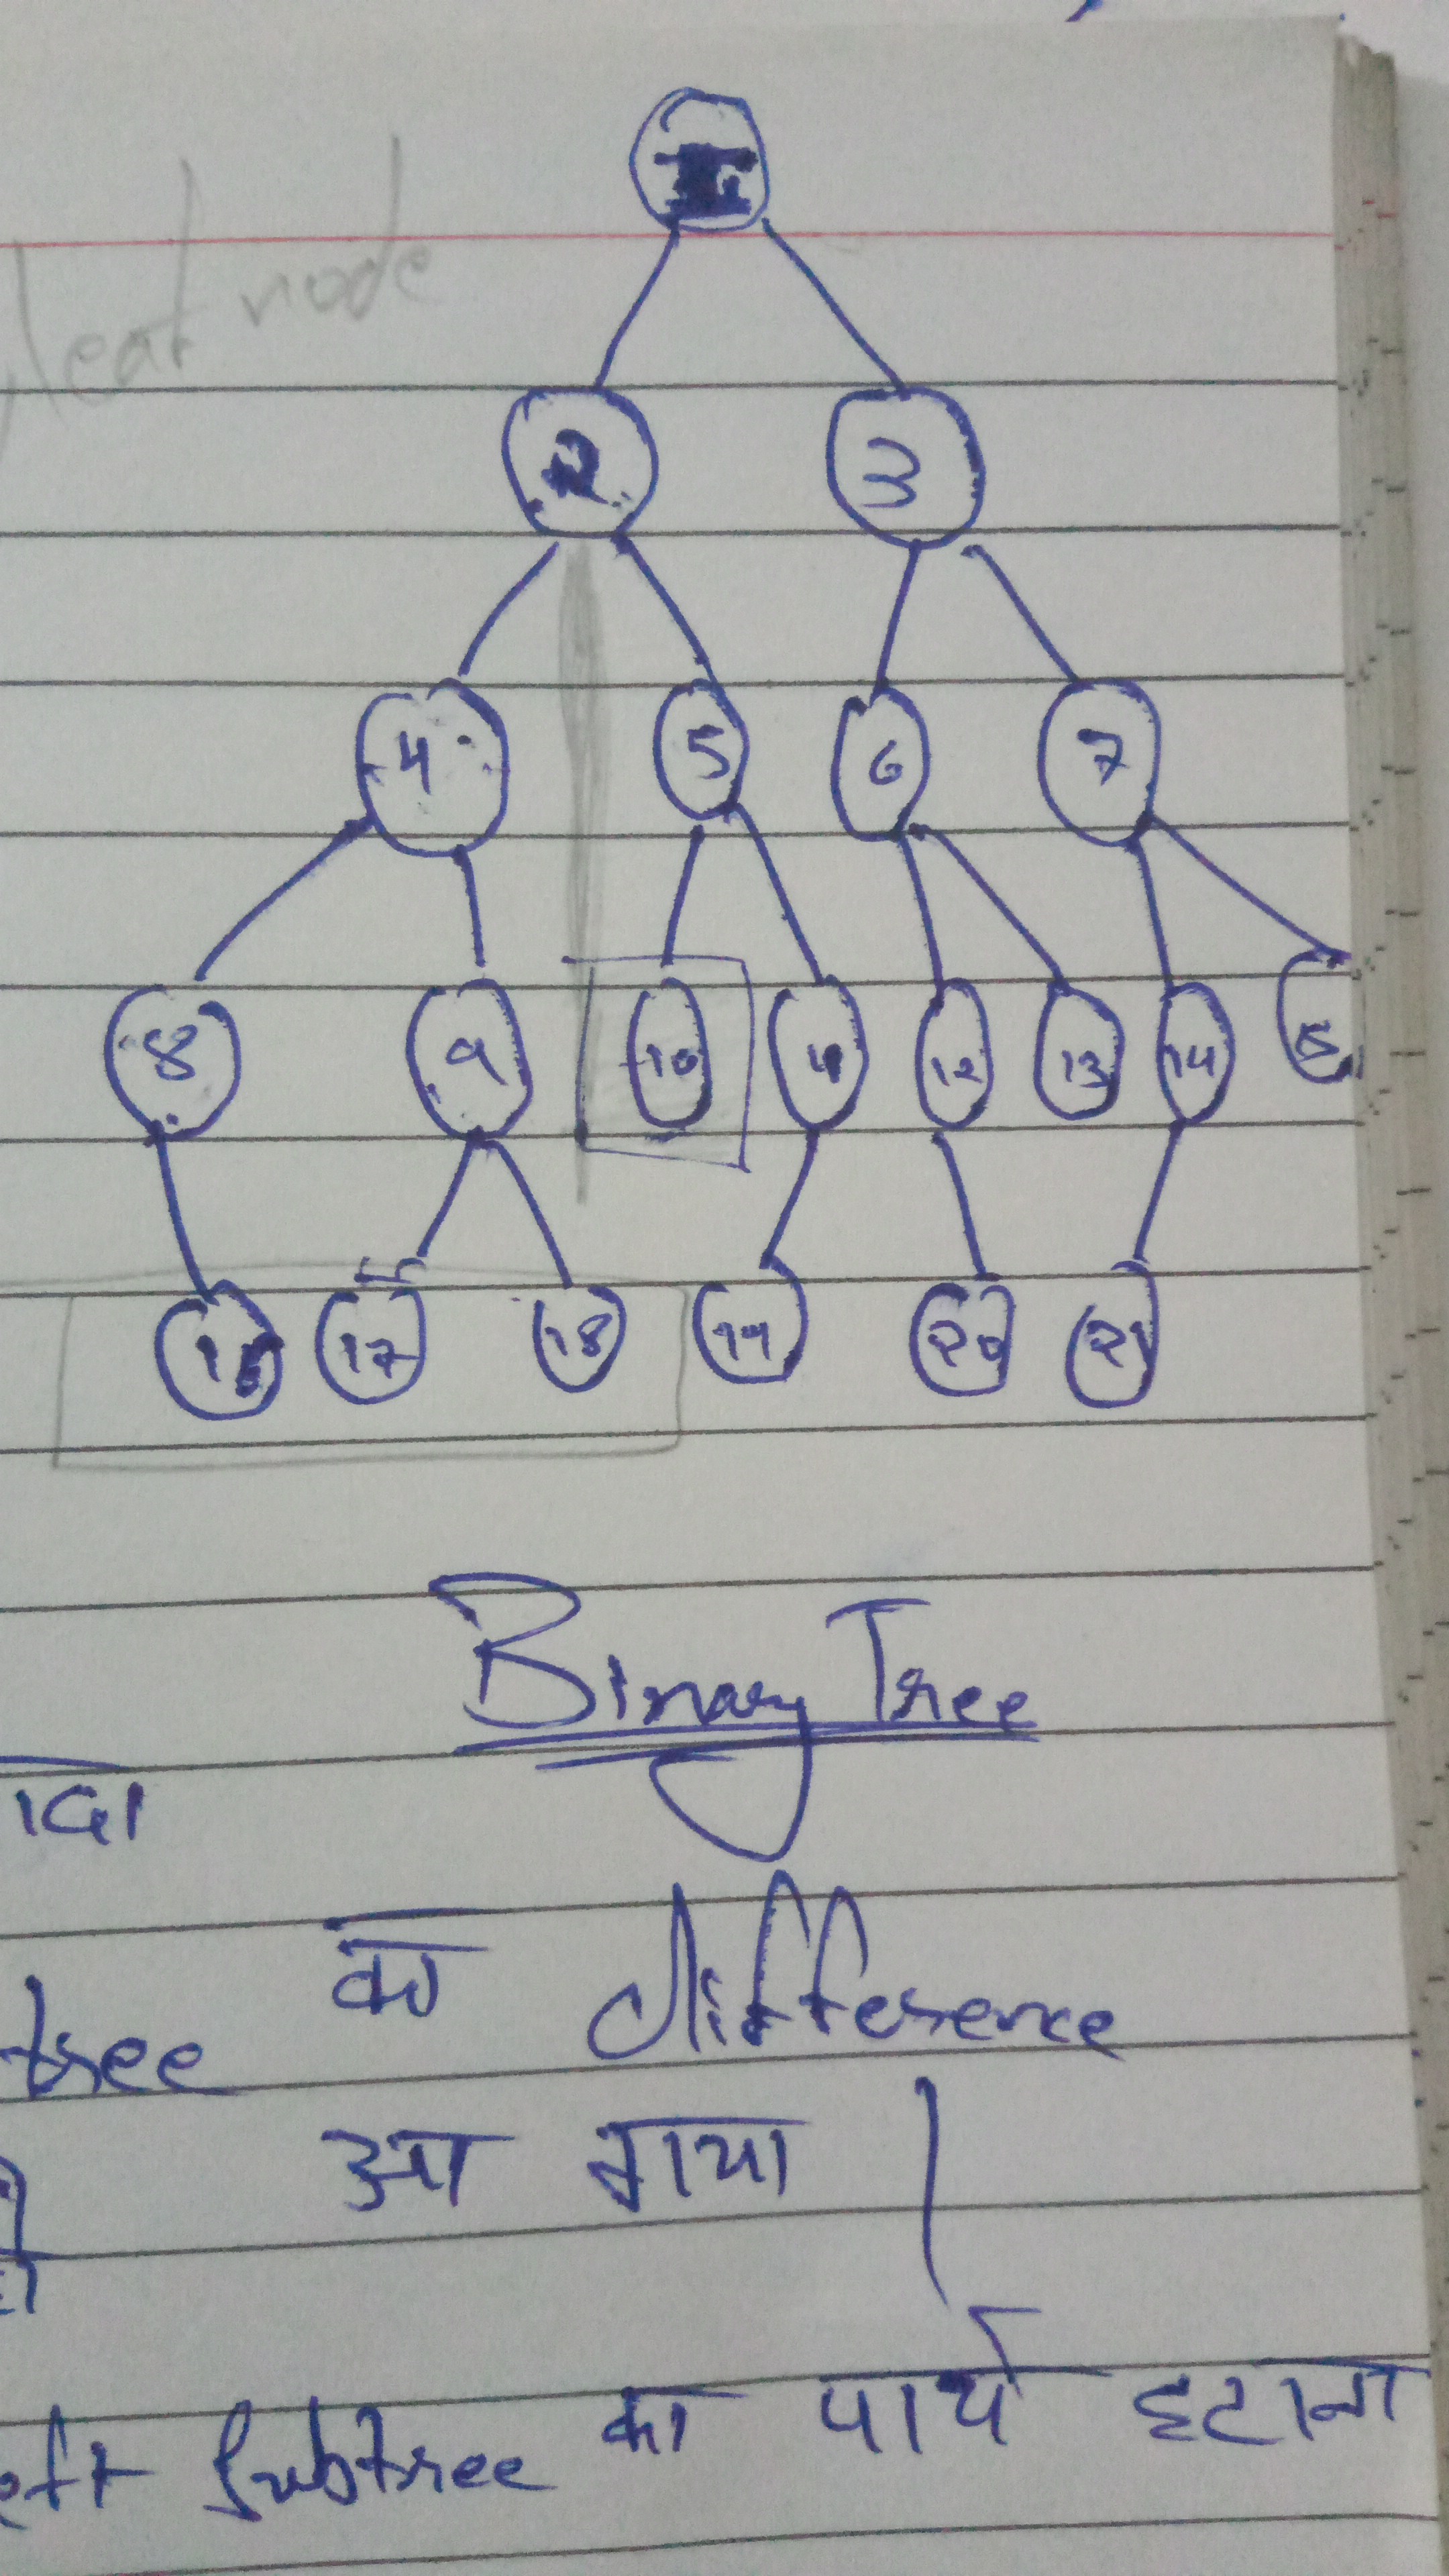 leaf node
2 3
4 5 6 7
8 9 10 11 12 13 14 15
16 17 18 19 20 21
Binary Tree
tree का difference
आ गया |
eft Subtree का पार्य हटाना